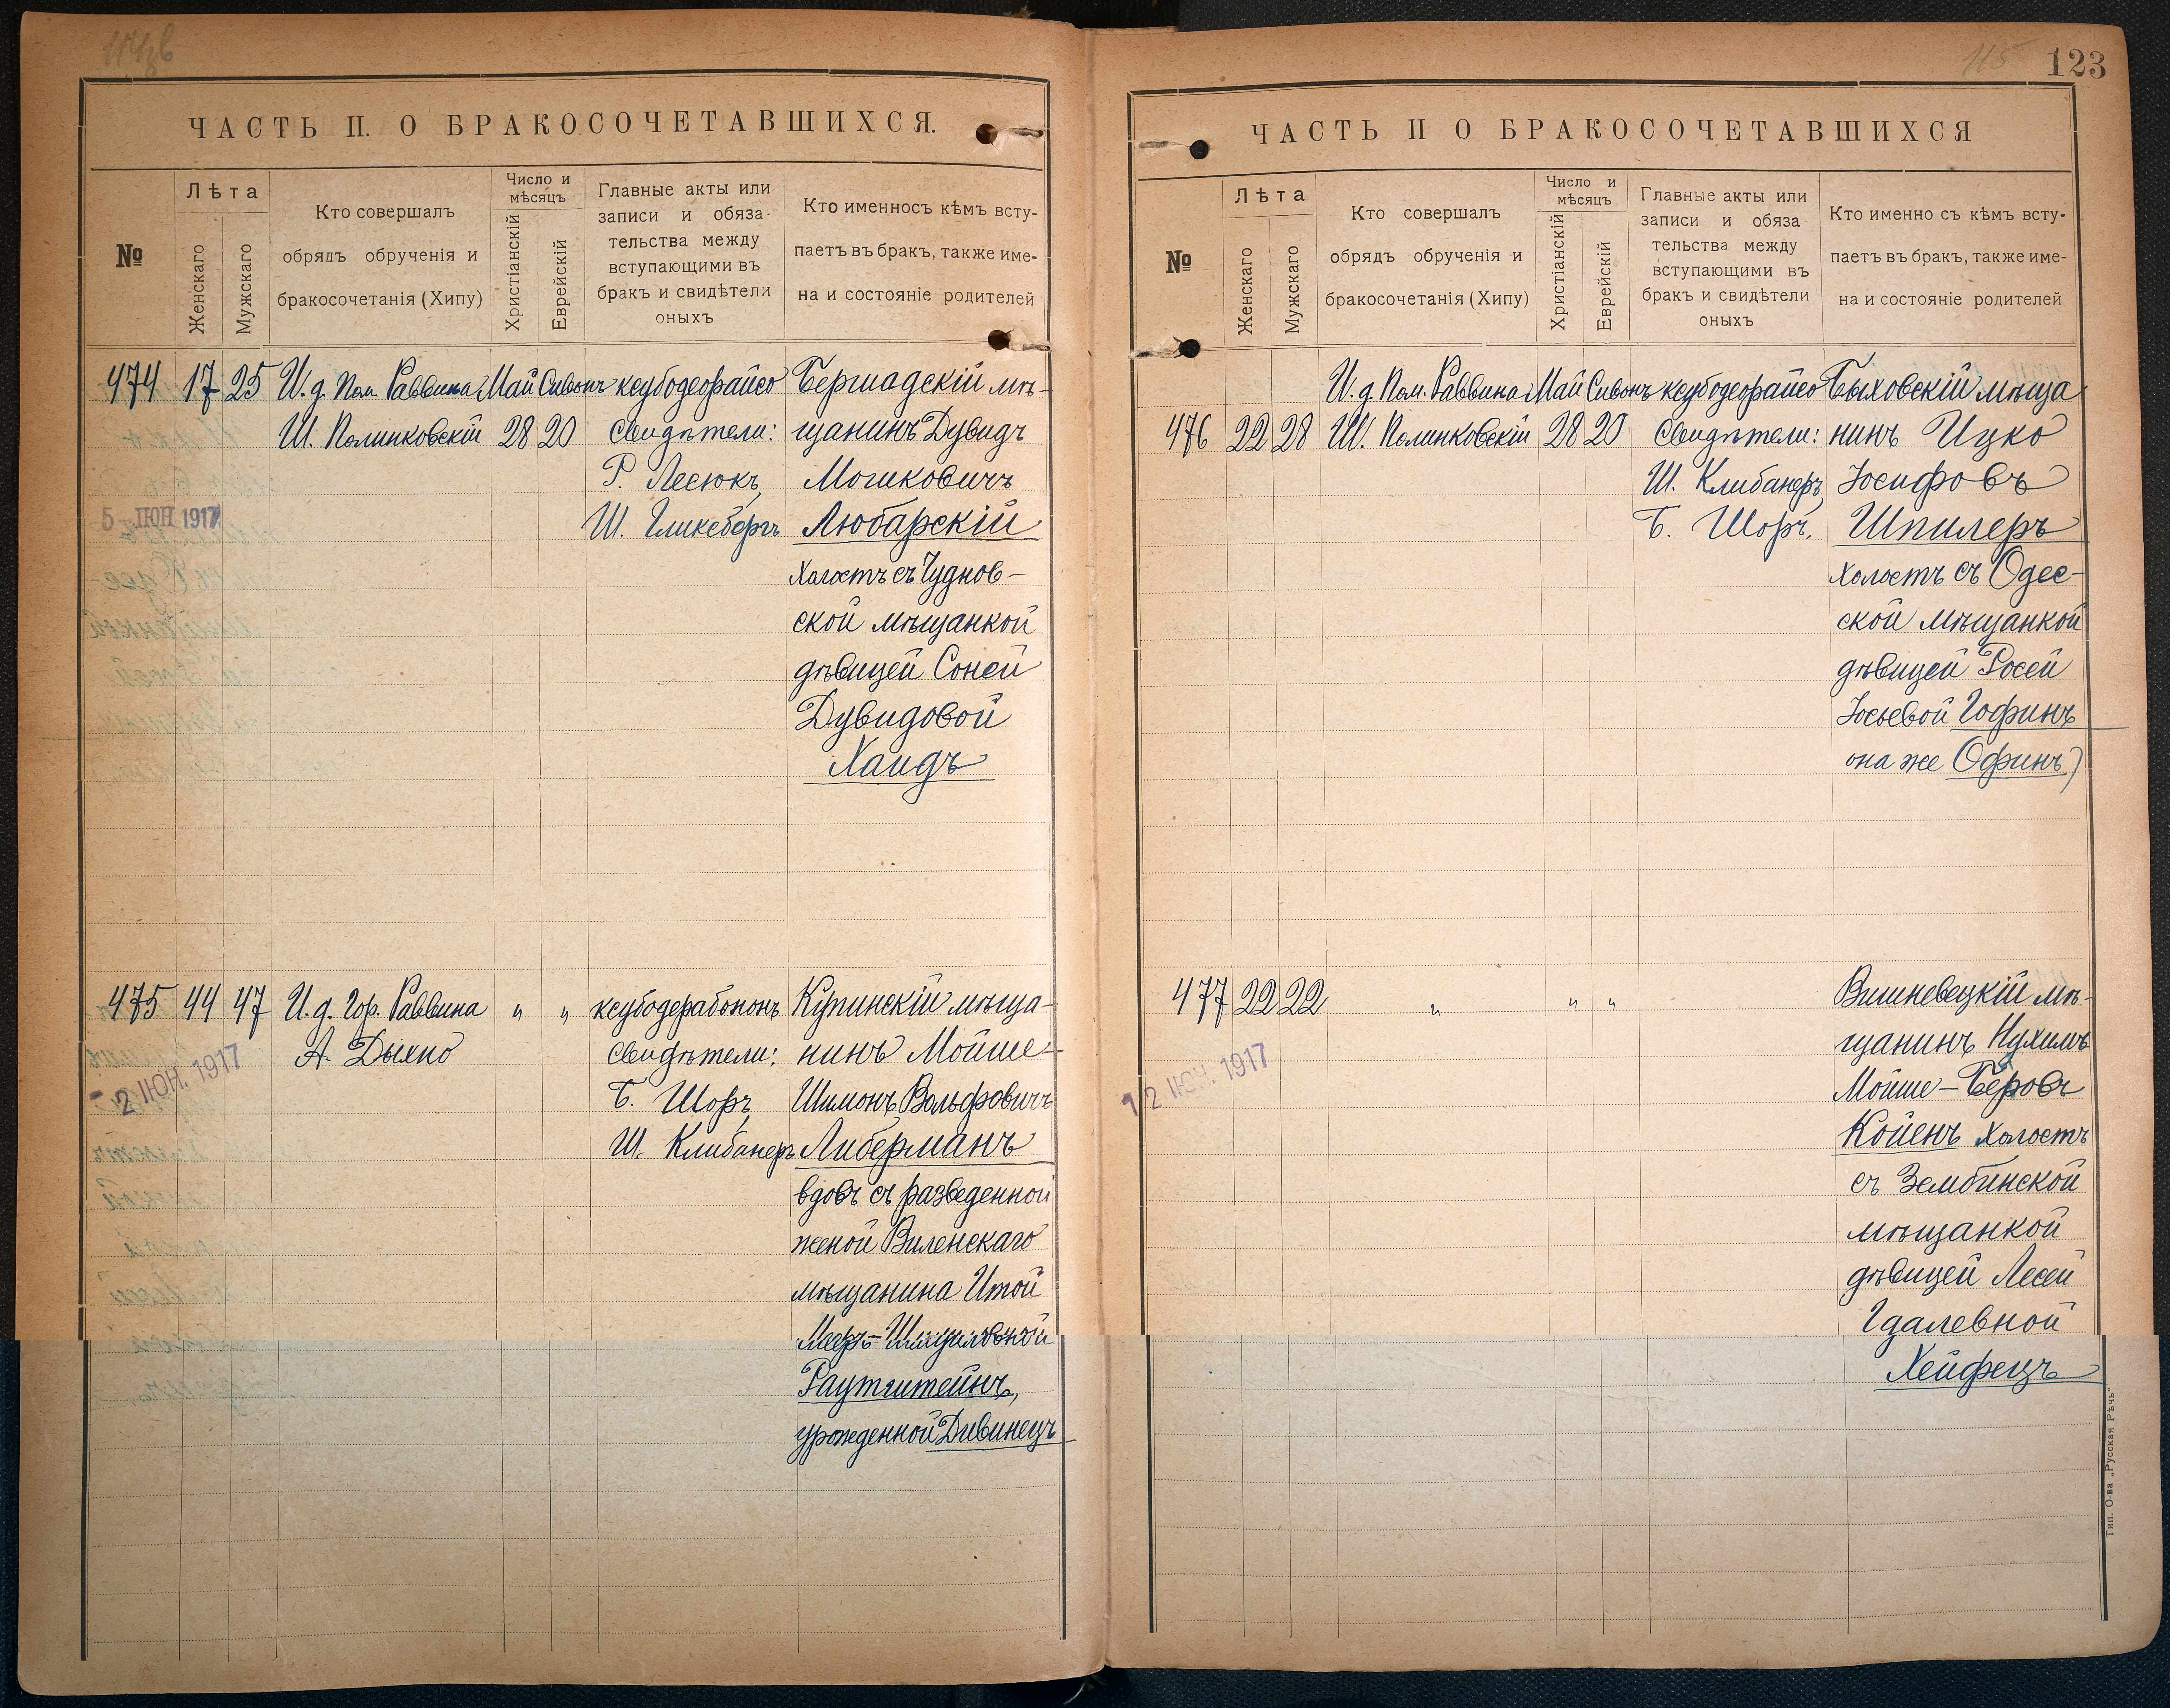 ЧАСТЬ II. О БРАКОСОЧЕТАВШИХСЯ.
№
Лѣта
Женскаго
Мужскаго
Кто совершалъ
обрядъ обрученія и
бракосочетанія (Хипу)
Число и
мѣсяцъ
Христіанскій
Еврейскій
Главные акты или
записи и обяза-
тельства между
вступающими въ
бракъ и свидѣтели
оныхъ
Кто именносъ кѣмъ всту-
паетъ въ бракъ, также име-
на и состояніе родителей
474 17 25 И. д. Пом. Раввина Май Сивонъ ксубодеорайсо Бершадскій мѣ-
Ш. Полинковскій 28 20 Свидѣтели: щанинъ Дувидъ
Р. Лесюкъ, Мошковичъ
5 ІЮН 1917
Ш. Гликсбергъ Любарскій
холостъ съ Чуднов-
ской мѣщанкой
дѣвицей Соней
Дувидовой
Хаидъ
475 44 47 И. д. Гор. Раввина " " ксубодерабононъ Купинскій мѣща-
А. Дыхно Свидѣтели: нинъ Мойше-
- 2 ІЮН. 1917
Б. Шоръ, Шимонъ Вольфовичъ
Ш. Клибанеръ Либерманъ
вдовъ съ разведенной
женой Виленскаго
мѣщанина Итой
Мееръ-Шмуиловной
Раутштейнъ,
урожденной Дивинецъ
115
123
ЧАСТЬ II О БРАКОСОЧЕТАВШИХСЯ
№
Лѣта
Женскаго
Мужскаго
Кто совершалъ
обрядъ обрученія и
бракосочетанія (Хипу)
Число и
мѣсяцъ
Христіанскій
Еврейскій
Главные акты или
записи и обяза
тельства между
вступающими въ
бракъ и свидѣтели
оныхъ
Кто именно съ кѣмъ всту-
паетъ въ бракъ, также име-
на и состояніе родителей
И. д. Пом. Раввина Май Сивонъ ксубодеорайсо Быховскій мѣща
476 22 28 Ш. Полинковскій 28 20 Свидѣтели: нинъ Ицко
Ш. Клибанеръ, Іосифовъ
Б. Шоръ. Шпилеръ
холостъ съ Одес-
ской мѣщанкой
дѣвицей Росей
Іосьевой Гофинъ
она же Офинъ)
477 22 22 " " " Вишневецкій мѣ-
щанинъ Нухимъ
12 ІЮН. 1917
Мойше-Беровъ
Койенъ холостъ
съ Зембинской
мѣщанкой
дѣвицей Лесей
Гдалевной
Хейфецъ
Тип. О-ва „Русская Рѣчь“